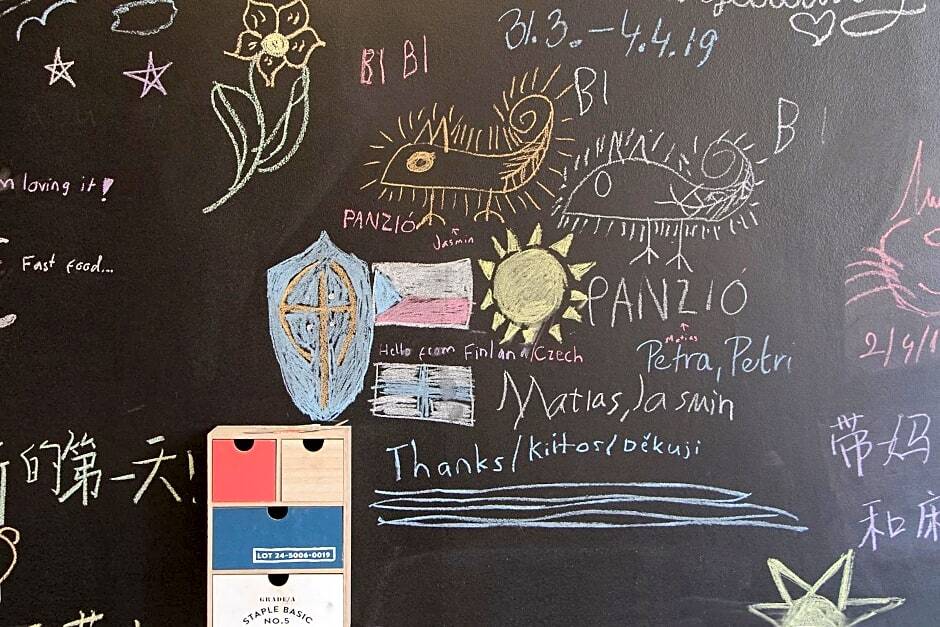 31.3.-4.4.19
BI BI
BI
B I
loving it!
PANZIÓ
Jasmin
Fast food...
PANZIÓ
Matias
Hello from Finland/Czech
Petra, Petri
Matias, Jasmin
的第一天!
Thanks/Kiitos/Děkuji
带妈
和
LOT 24-5006-0019
GRADE/A
STAPLE BASIC
NO.5